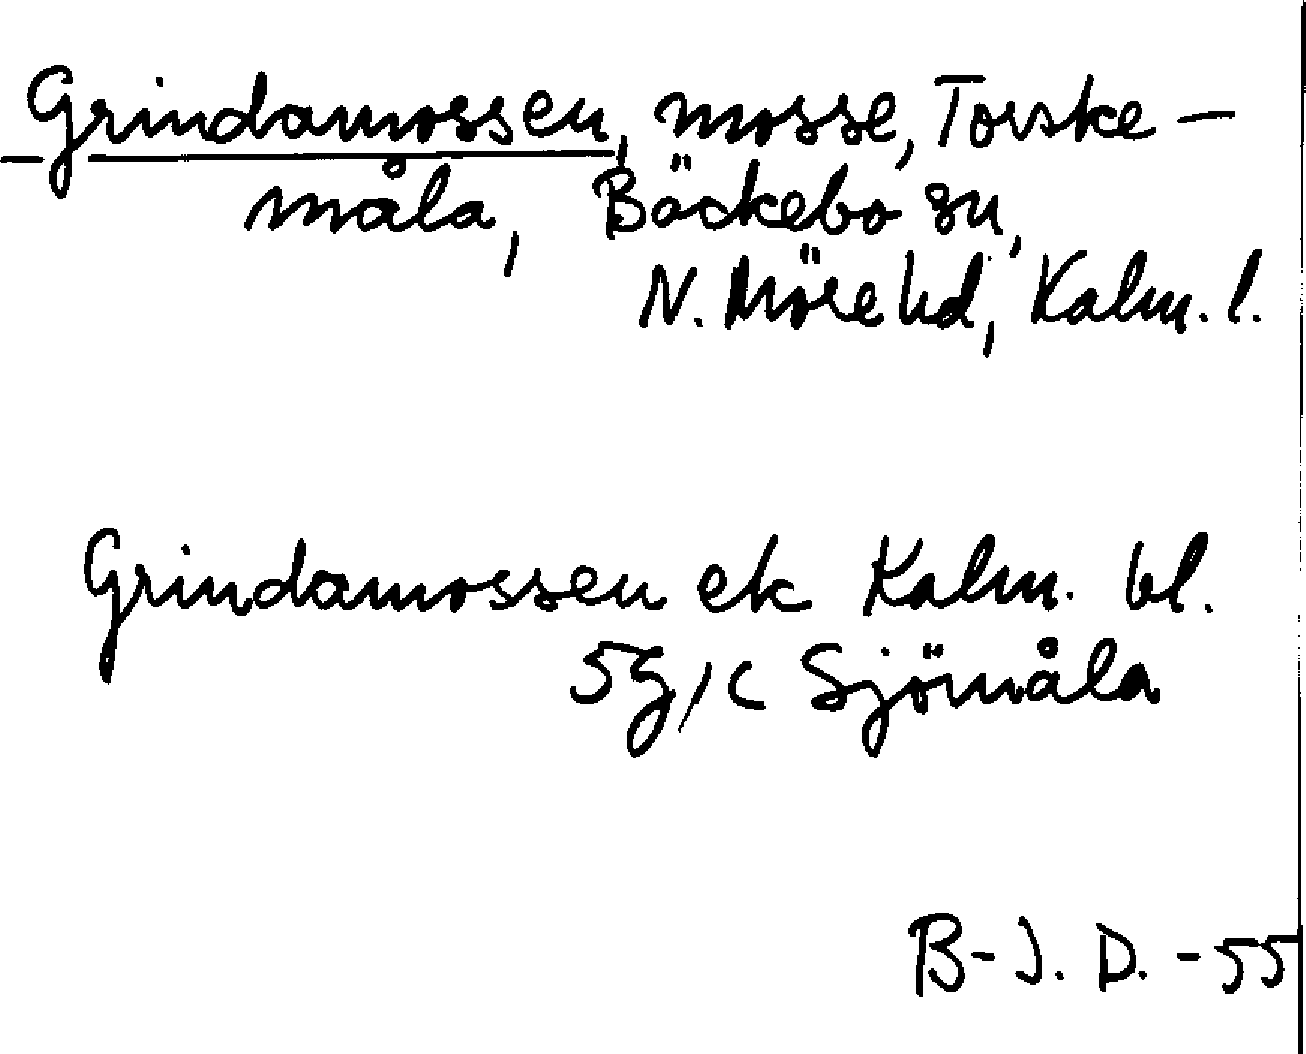 Grindamossen, mosse, Torske-
måla, Bäckebo sn,
N. Möre hd, Kalm. l.
Grindamossen ek Kalm. bl.
5g, c Sjömåla
B-J. D. -55